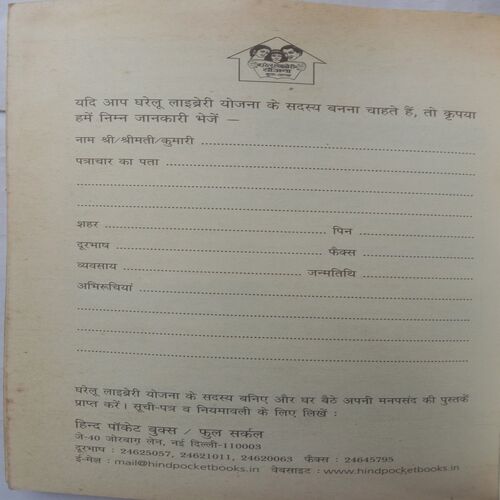 घरेलू लाइब्रेरी
योजना
यदि आप घरेलू लाइब्रेरी योजना के सदस्य बनना चाहते हैं, तो कृपया
हमें निम्न जानकारी भेजें —
नाम श्री/श्रीमती/कुमारी
पत्राचार का पता
शहर पिन
दूरभाष फैक्स
व्यवसाय जन्मतिथि
अभिरूचियां
घरेलू लाइब्रेरी योजना के सदस्य बनिए और घर बैठे अपनी मनपसंद की पुस्तकें
प्राप्त करें। सूची-पत्र व नियमावली के लिए लिखें :
हिन्द पॉकेट बुक्स / फुल सर्कल
जे-40 जोरबाग़ लेन, नई दिल्ली-110003
दूरभाष : 24625057, 24621011, 24620063 फैक्स : 24645795
ई-मेल : mail@hindpocketbooks.in वेबसाइट : www.hindpocketbooks.in